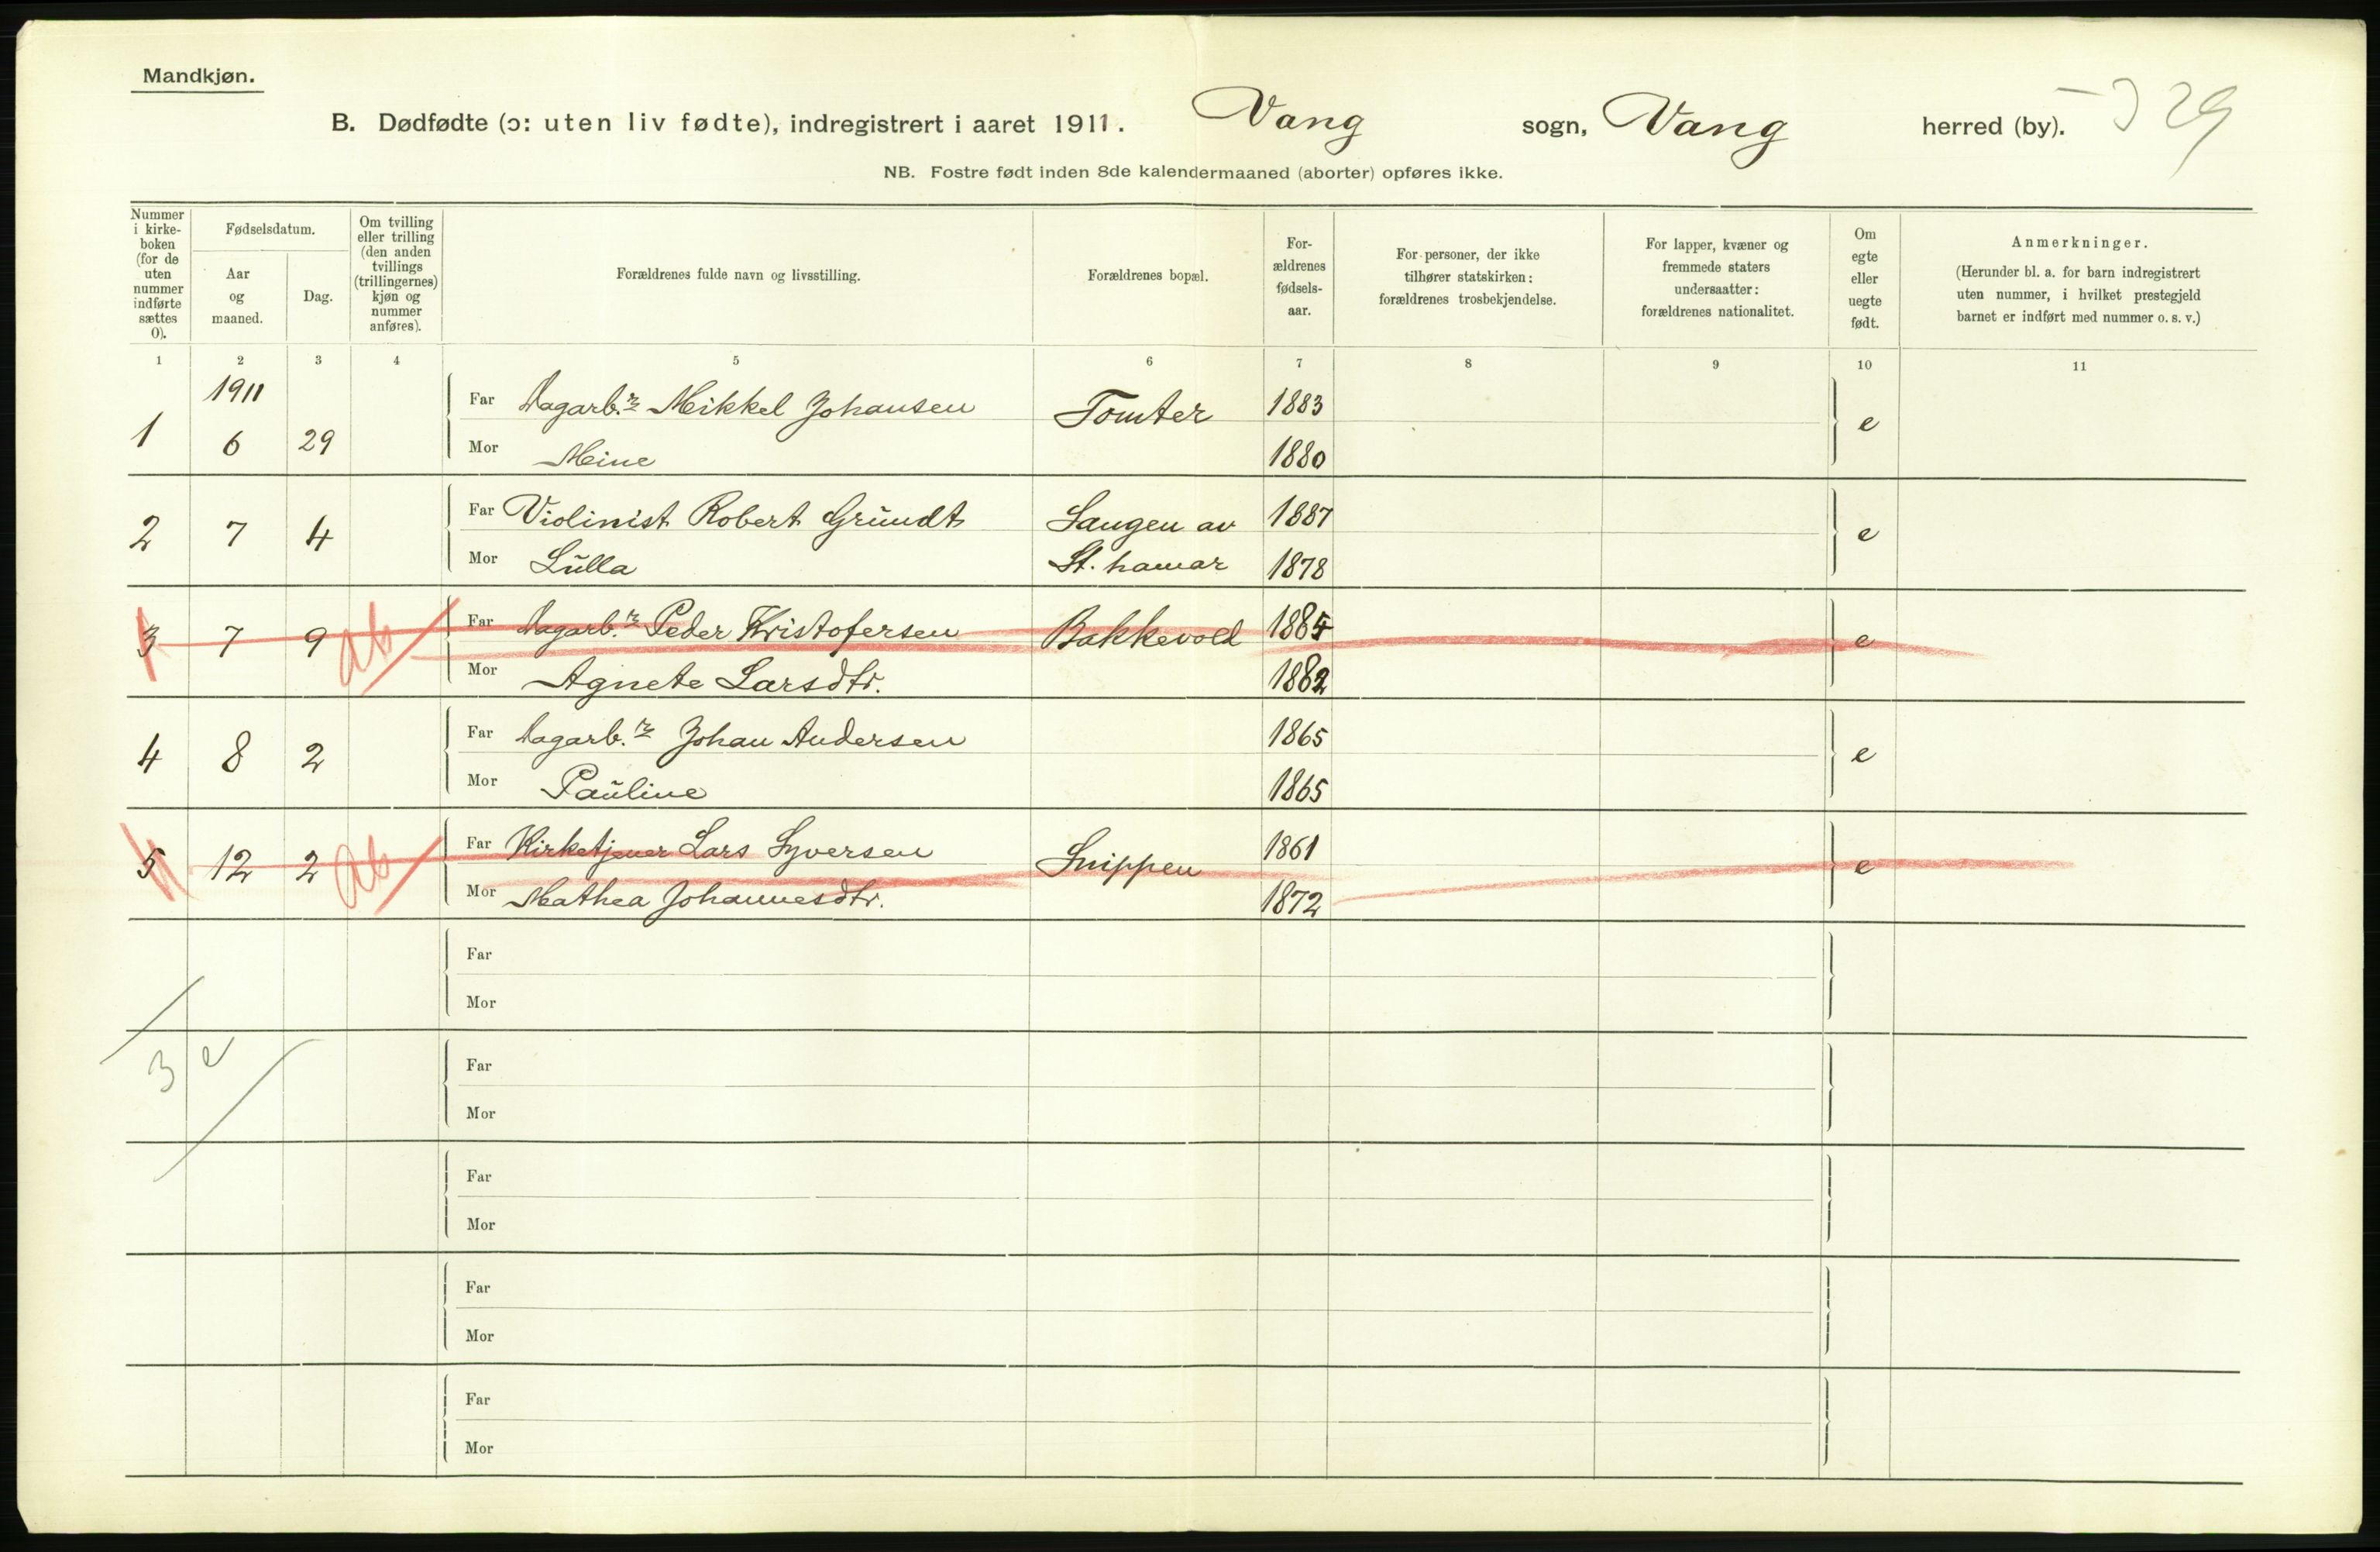 Mandkjøn.
B. Dødfødte (ɔ: uten liv fødte), indregistrert i aaret 1911. Vang sogn, Vang herred (by). 29
NB. Fostre født inden 8de kalendermaaned (aborter) opføres ikke.
Nummer i kirke-boken (for de uten nummer indførte sættes 0).
Fødselsdatum.
Aar og maaned.
Dag.
Om tvilling eller trilling (den anden tvillings (trillingernes) kjøn og nummer anføres).
Forældrenes fulde navn og livsstilling.
Forældrenes bopæl.
For-ældrenes fødsels-aar.
For personer, der ikke tilhører statskirken: forældrenes trosbekjendelse.
For lapper, kvæner og fremmede staters undersaatter: forældrenes nationalitet.
Om egte eller uegte født.
Anmerkninger.
(Herunder bl. a. for barn indregistrert uten nummer, i hvilket prestegjeld barnet er indført med nummer o. s. v.)
1 2 3 4 5 6 7 8 9 10 11
1911
1 6 29 Far Dagarb.r Mikkel Johansen Tomter 1883 e
Mor Meine 1880
2 7 4 Far Violinist Robert Grundt Sangen av 1887 e
Mor Lulla St. hamar 1878
3 7 9 ab Far Dagarb.r Peder Kristofersen Bakkevold 1884 e
Mor Agnete Larsdtr. 1882
4 8 2 Far Dagarb.r Johan Andersen 1865 e
Mor Pauline 1865
5 12 2 ab Far Kirketjener Lars Syversen Snippen 1861 e
Mor Mathea Johannesdtr. 1872
Far
Mor
3 e
Far
Mor
Far
Mor
Far
Mor
Far
Mor